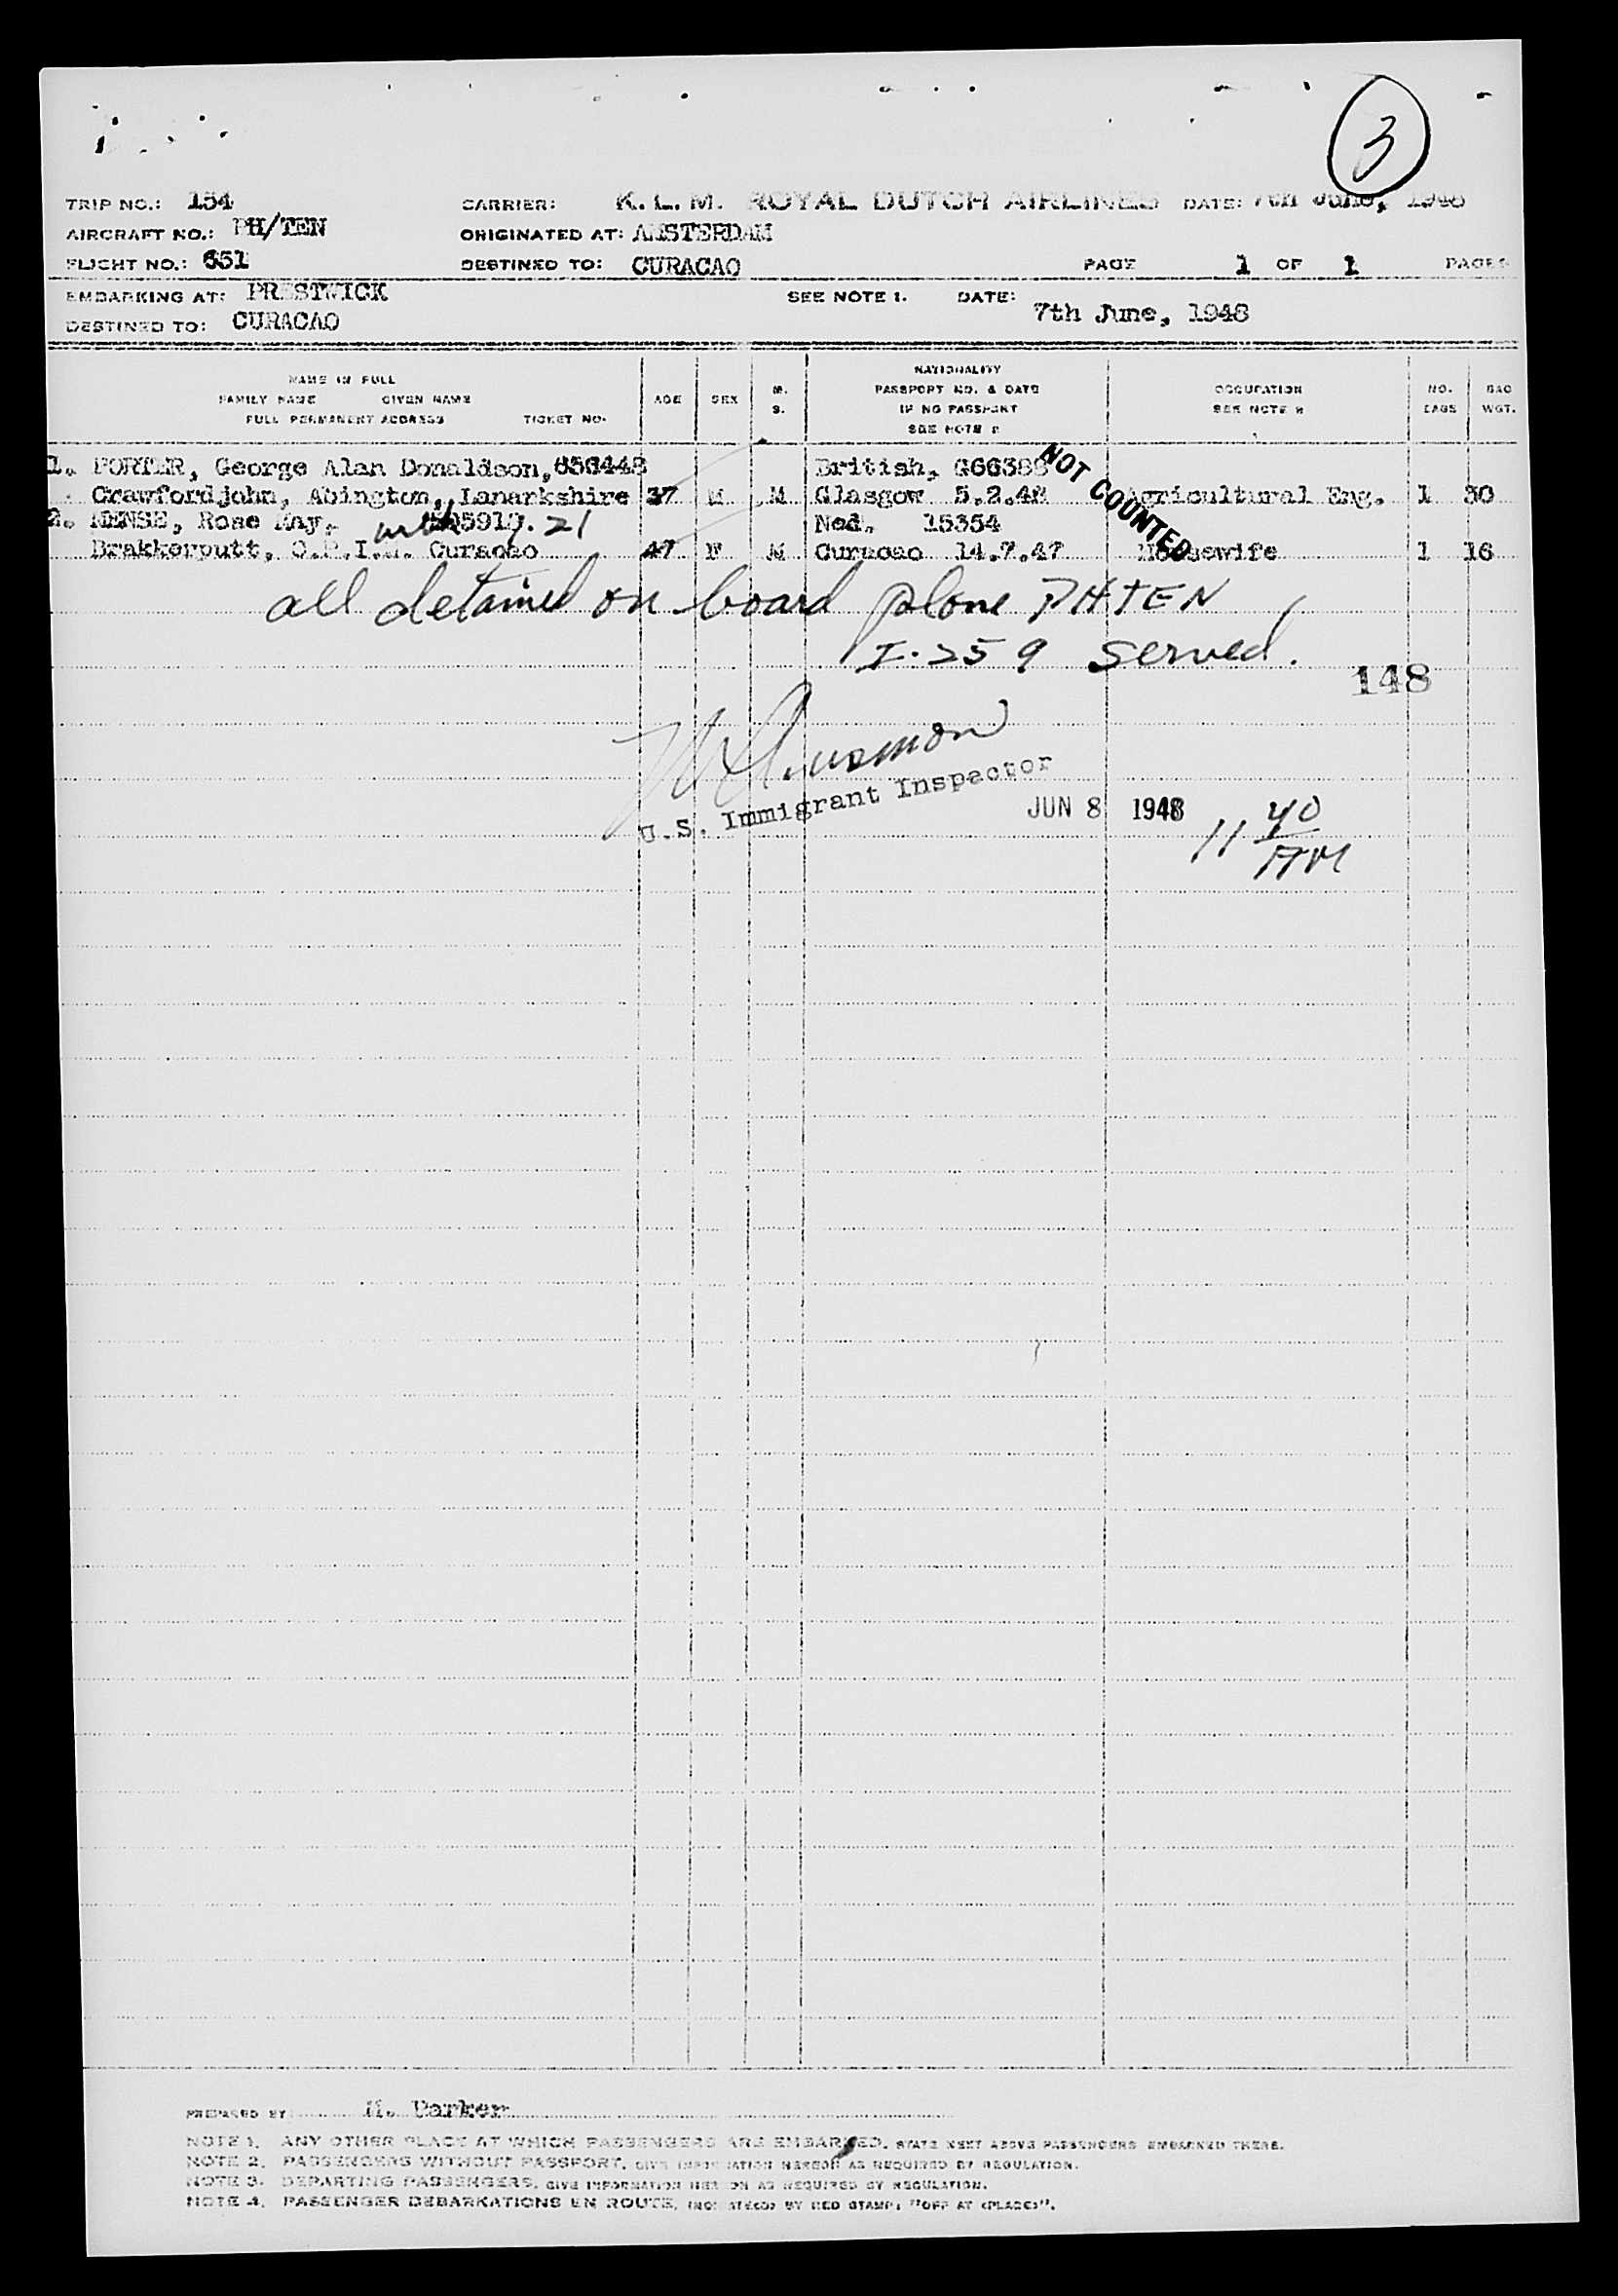 3
TRIP NO.: 154 CARRIER: K.L.M. ROYAL DUTCH AIRLINES DATE: 7th June, 1948
AIRCRAFT NO.: PH/TEN ORIGINATED AT: AMSTERDAM
FLIGHT NO.: 651 DESTINED TO: CURACAO PAGE 1 OF 1 PAGES
EMBARKING AT: PRESTWICK SEE NOTE 1. DATE: 7th June, 1948
DESTINED TO: CURACAO
NAME IN FULL
FAMILY NAME GIVEN NAME
FULL PERMANENT ADDRESS TICKET NO.
AGE SEX M. S.
NATIONALITY
PASSPORT NO. & DATE
IF NO PASSPORT
SEE NOTE 2
OCCUPATION
SEE NOTE
NO. BAGS
BAG WGT.
1. PORTER, George Alan Donaldson, 656448 British, G66388
Crawfordjohn, Abington, Lanarkshire 37 M M Glasgow 5.2.48 Agricultural Eng. 1 30
2. MENSE, Rose May. with 21 Ned. 15354
Brakkerputt, Curacao 47 F M Curacao 14.7.47 Housewife 1 16
NOT COUNTED
all detained on board plane PHTEN
I-259 served.
148
U.S. Immigrant Inspector
JUN 8 1948 11 40 AM
PREPARED BY H. Parker
NOTE 1. ANY OTHER PLACE AT WHICH PASSENGERS ARE EMBARKED, STATE NEXT ABOVE PASSENGERS EMBARKED THERE.
NOTE 2. PASSENGERS WITHOUT PASSPORT, GIVE INFORMATION HEREON AS REQUIRED BY REGULATION.
NOTE 3. DEPARTING PASSENGERS, GIVE INFORMATION HEREON AS REQUIRED BY REGULATION.
NOTE 4. PASSENGER DEBARKATIONS EN ROUTE, INDICATED BY RED STAMP: "OFF AT (PLACE)".